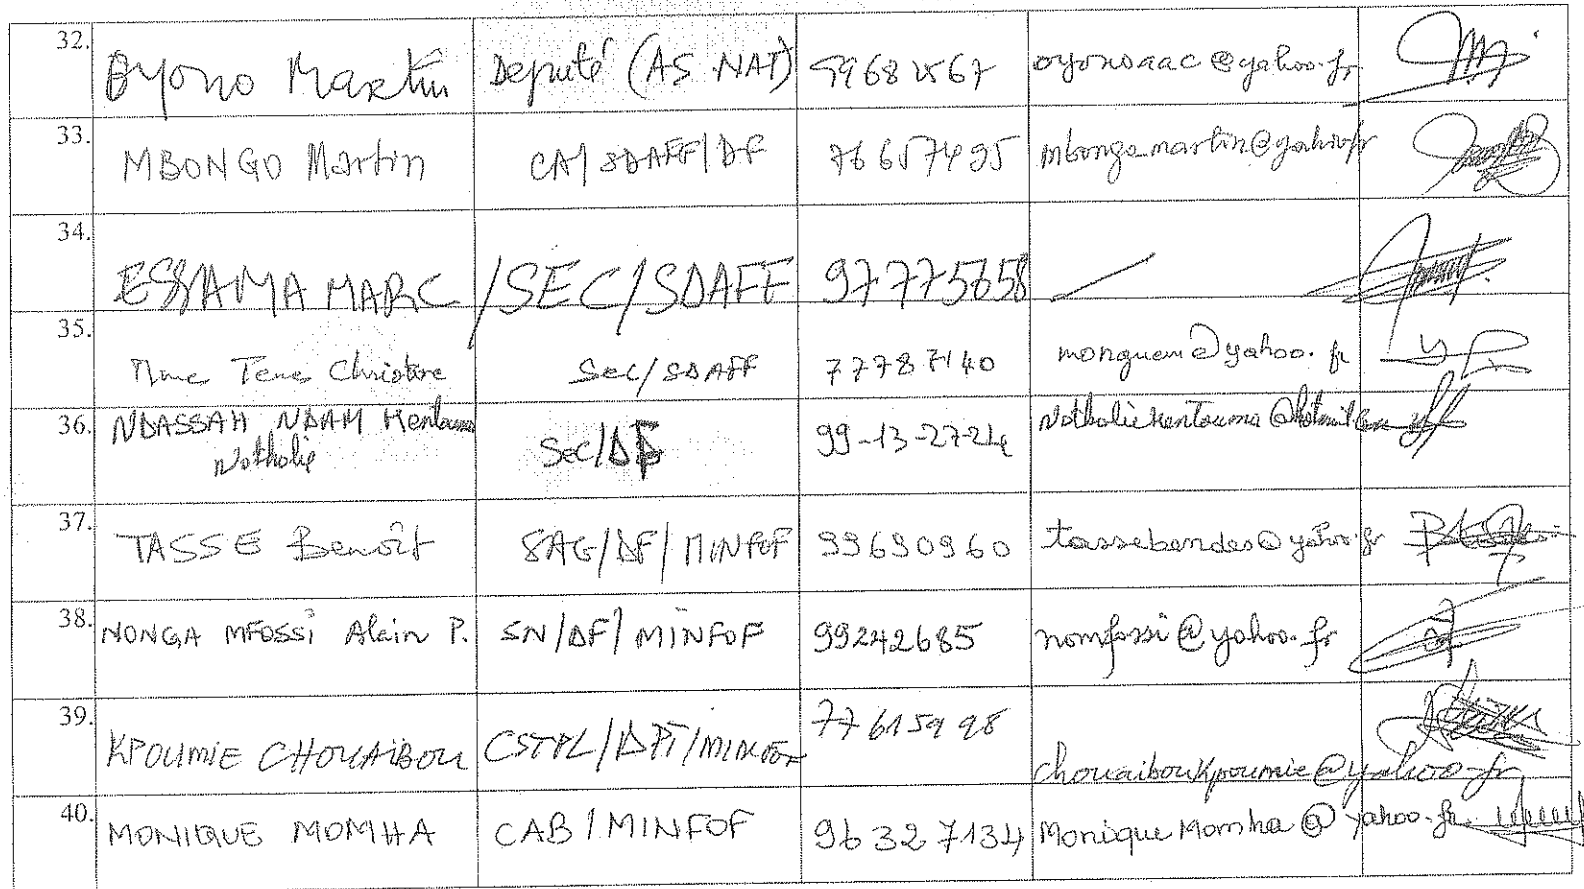 32. Oyono Martin Deputé (AS.NAT) 99682567 oyonoaac@yahoo.fr
33. MBONGO Martin CA/SDAFF/DF 76657495 mbongamartin@yahoo.fr
34. ESSAMA MARC /SEC/SDAFF 97775658 /
35. Mme Tene Christine Sec/SDAFF 77787140 monguem@yahoo.fr
36. NDASSAH NDAM Kentouma Sec/DF 99-13-27-24 Nathaliekentouma@hotmail.com
Nathalie
37. TASSE Benoît SAG/DF/MINFOF 99690960 tassebendes@yahoo.fr
38. NONGA MFOSSi Alain P. SN/DF/MINFOF 99242685 nomfossi@yahoo.fr
39. KPOUMIE CHOUAÏBOU CSTPL/DPT/MINFOF 77615998 chouaiboukpoumie@yahoo.fr
40. MONIQUE MOMHA CAB/MINFOF 96327134 MoniqueMomha@yahoo.fr